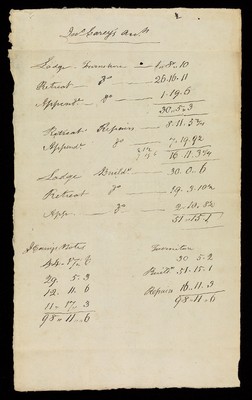 Jno. Carey's Acct.
Lodge Furniture — 1.8.10
Retreat — Do — 26.16.11
Append. — Do — 1.19.6
30.5.3
Retreat Repairs — 8.11.5¾
Append. Do — 7.19.9½
16.11.3¼
Lodge Build. — 30.0.6
Retreat Do — 19.3.10½
App. — Do — 2.10.8½
51.15.1
J Careys Notes
44.17.6
29.5.3
12.11.6
11.17.3
98.11.6
Furniture
30.5.2
Build. 51.15.1
Repairs 16.11.3
98.11.6